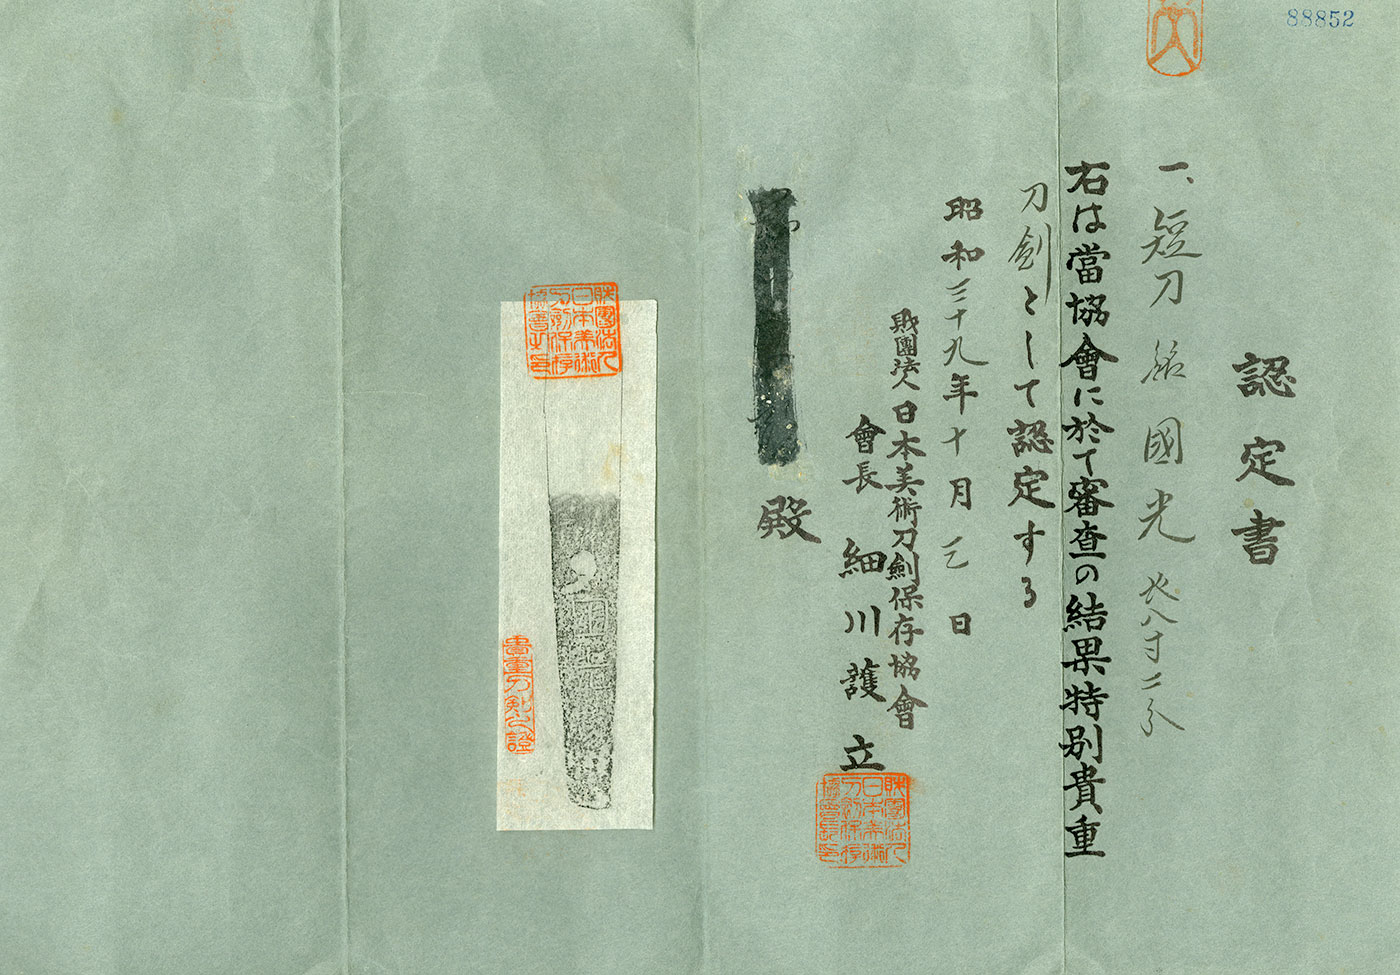 88852
認定書
一、短刀 銘 國光 長八寸二分
右は當協會に於て審査の結果特別貴重
刀劍として認定する
昭和三十九年十月 日
財團法人日本美術刀劍保存協會
會長 細川護立
財團法人日本美術刀劍保存協會長印
殿
財團法人日本美術刀劍保存協會之印
國光
貴重刀剣之證